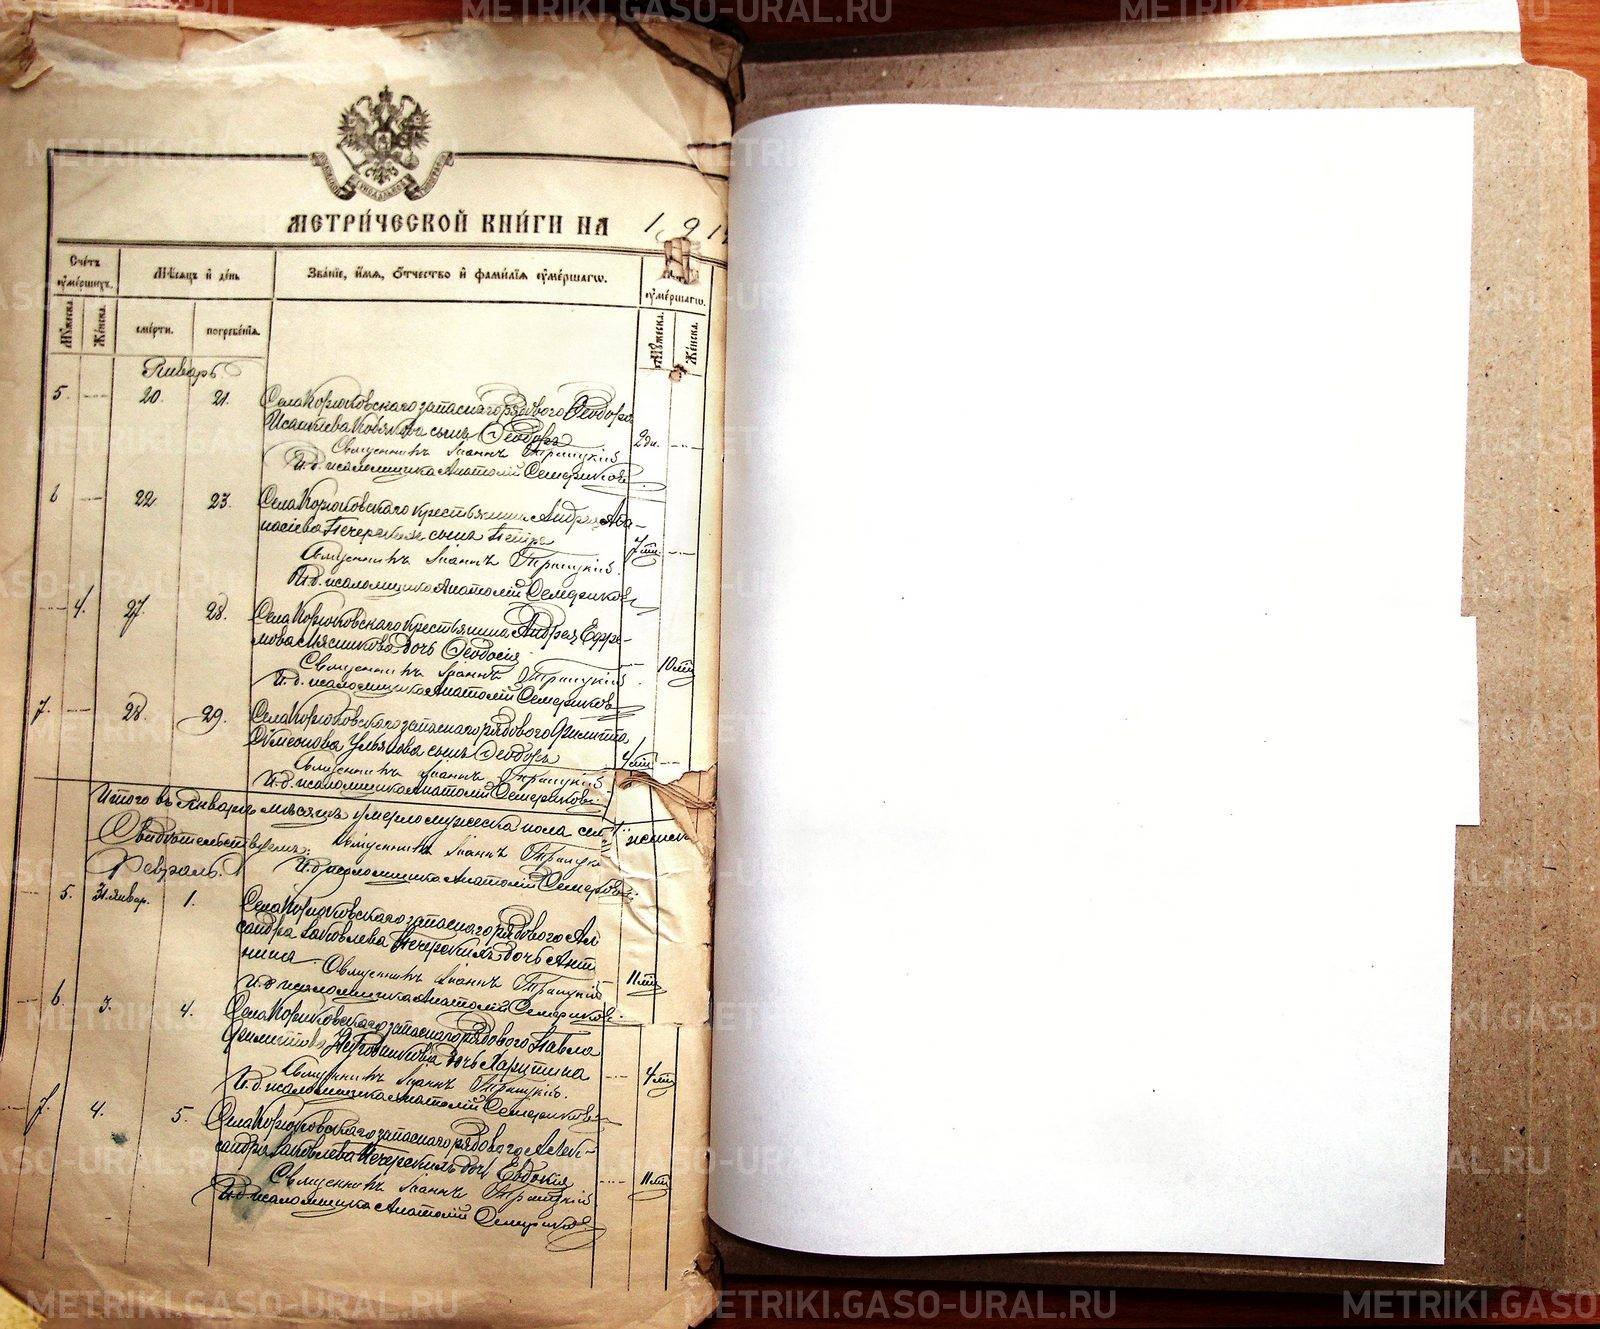 МЕТРИЧЕСКОЙ КНИГИ НА 191
Счетъ умершихъ.
Мѣсяцъ и день
Званіе, имя, отчество и фамилія умершаго.
умершаго.
Мужеска.
Женска.
смерти.
погребенія.
Мужеска.
Женска.
Январь
5 20. 21. Села Корюковскаго запаснаго рядового Ѳеодора
Исакіева Кобякова сынъ Ѳеодоръ 2 дн.
Священникъ Іоаннъ Троицкій
И.д. псаломщика Анатолій Семериковъ.
6 22. 23. Села Корюковскаго крестьянина Андрея Аѳа-
насіева Печерскихъ сынъ Петръ 7 лѣт.
Священникъ Іоаннъ Троицкій.
И.д. псаломщика Анатолій Семериковъ
4. 27. 28. Села Корюковскаго крестьянина Андрея Ефре-
мова Мясникова дочь Ѳеодосія 10 лѣт
Священникъ Іоаннъ Троицкій.
И.д. псаломщика Анатолій Семериковъ
7. 28. 29. Села Корюковскаго запаснаго рядового Филиппа
Симеонова Ульянова сынъ Ѳеодоръ 4 лѣт
Священникъ Іоаннъ Троицкій
И.д. псаломщика Анатолій Семериковъ.
Итого въ Январѣ мѣсяцѣ умерло мужеска пола
Свидѣтельствуемъ: Священникъ Іоаннъ
Февраль. И.д. псаломщика Анатолій Семериковъ
5. 31 январ. 1. Села Корюковскаго запаснаго рядового Ал
сандра Іаковлева Печерскихъ дочь Ант
нина 11 лѣт
Священникъ Іоаннъ Троицкій
И.д. псаломщика Анатолій Семериковъ.
6. 3. 4. Села Корюковскаго запаснаго рядового Павла
Филиппова дочь Харитина 4 лѣт
Священникъ Іоаннъ Троицкій.
И.д. псаломщика Анатолій Семериковъ
7. 4. 5. Села Корюковскаго запаснаго рядового Алек-
сандра Іаковлева Печерскихъ дочь Евдокія 11 лѣт
Священникъ Іоаннъ Троицкій
И.д. псаломщика Анатолій Семериковъ.
METRIKI.GASO-URAL.RU